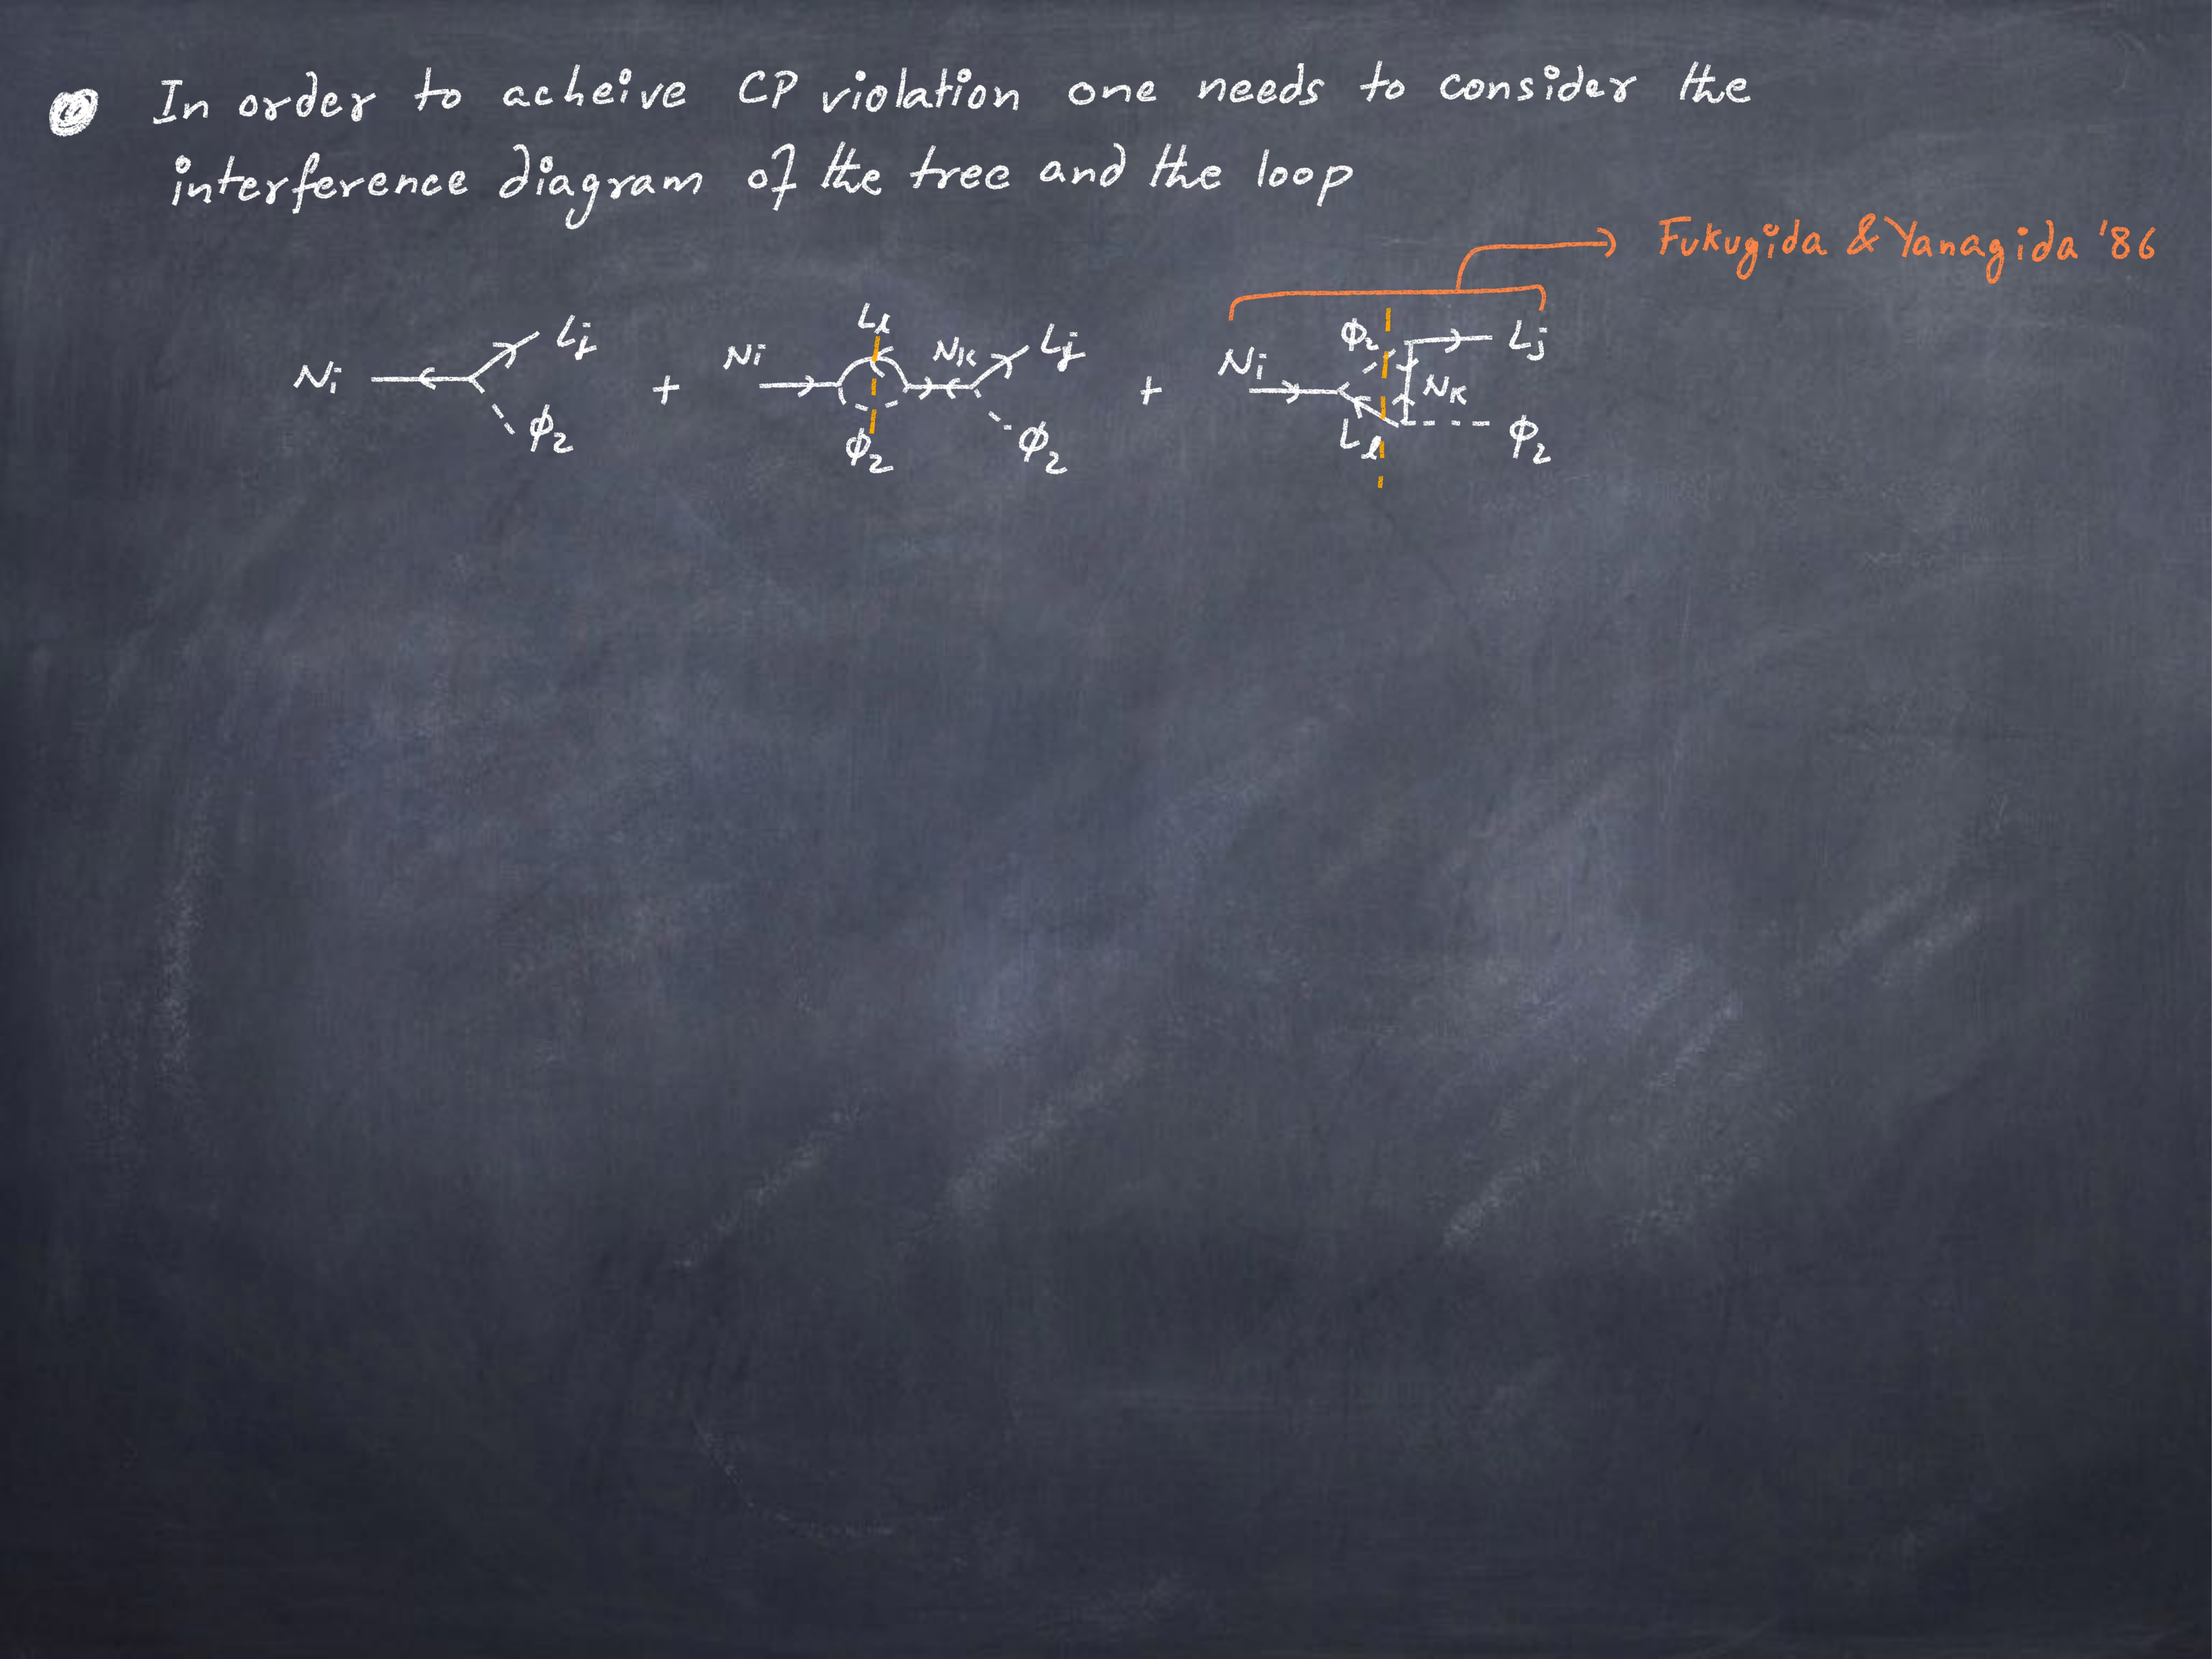 In order to acheive CP violation one needs to consider the
interference diagram of the tree and the loop
Fukugida & Yanagida '86
Ni Lj ϕ2 + Ni Ll ϕ2 NK Lj ϕ2 + Ni ϕ2 Ll NK Lj ϕ2